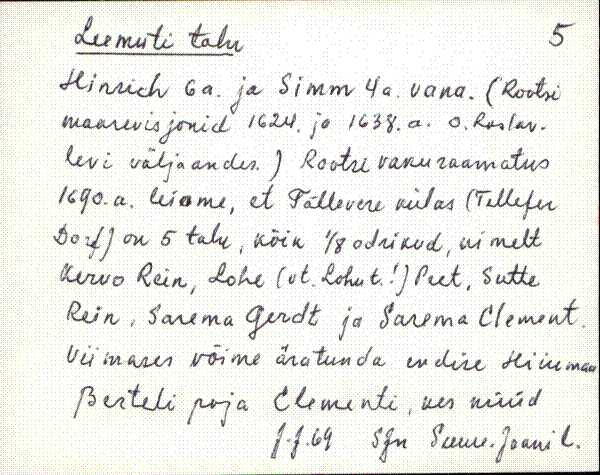 Leemuti talu 5
Hinrich 6 a. ja Simm 4 a. vana. (Rootsi
maarevisjonid 1624. ja 1638. a. O. Roslav-
levi väljaandes.) Rootsi vakuraamatus
1690. a. leiame, et Tällevere külas (Tellefer
Dorf) on 5 talu, kõik 1/8 adrikud, nimelt
Kervo Rein, Lohe (vt. Lohu t.!) Peet, Sutte
Rein, Sarema Gerdt ja Sarema Clement.
Viimases võime äratunda endise Hiiumaa
Berteli poja Clementi, kes nüüd
SJn Suure-Jaani l.